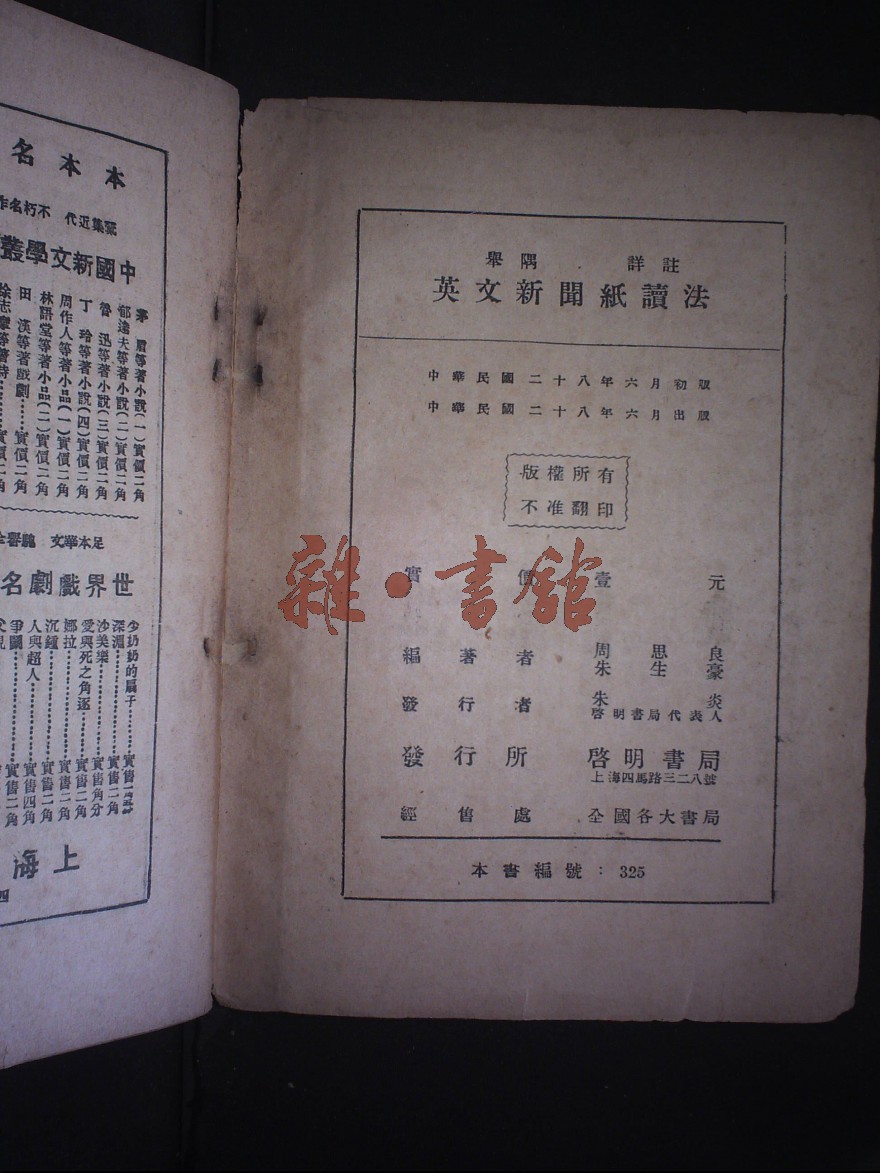 本本名
蒐集近代 不朽名作
中國新文學叢
茅盾等著小說(一)實價二角
郁達夫等著小說(二)實價二角
魯迅等著小說(三)實價二角
丁玲等著小說(四)實價二角
周作人等著小品(一)實價二角
林語堂等著小品(二)實價二角
田漢等著戲劇……實價二角
徐志摩等著詩……實價二角
足本華文
世界戲劇名
少奶奶的扇子
深淵……實售二角
沙美樂……實售角分
愛與死之角逐……實售二角
娜拉……實售二角
沉鐘……實售二角
人與超人……實售四角
爭鬪……實售二角
上海
四
舉隅 詳註
英文新聞紙讀法
中華民國二十八年六月初版
中華民國二十八年六月出版
版權所有
不准翻印
實價壹元
雜·書館
編著者 周思良
朱生豪
發行者 朱炎
啓明書局代表人
發行所 啓明書局
上海四馬路三二八號
經售處 全國各大書局
本書編號：325